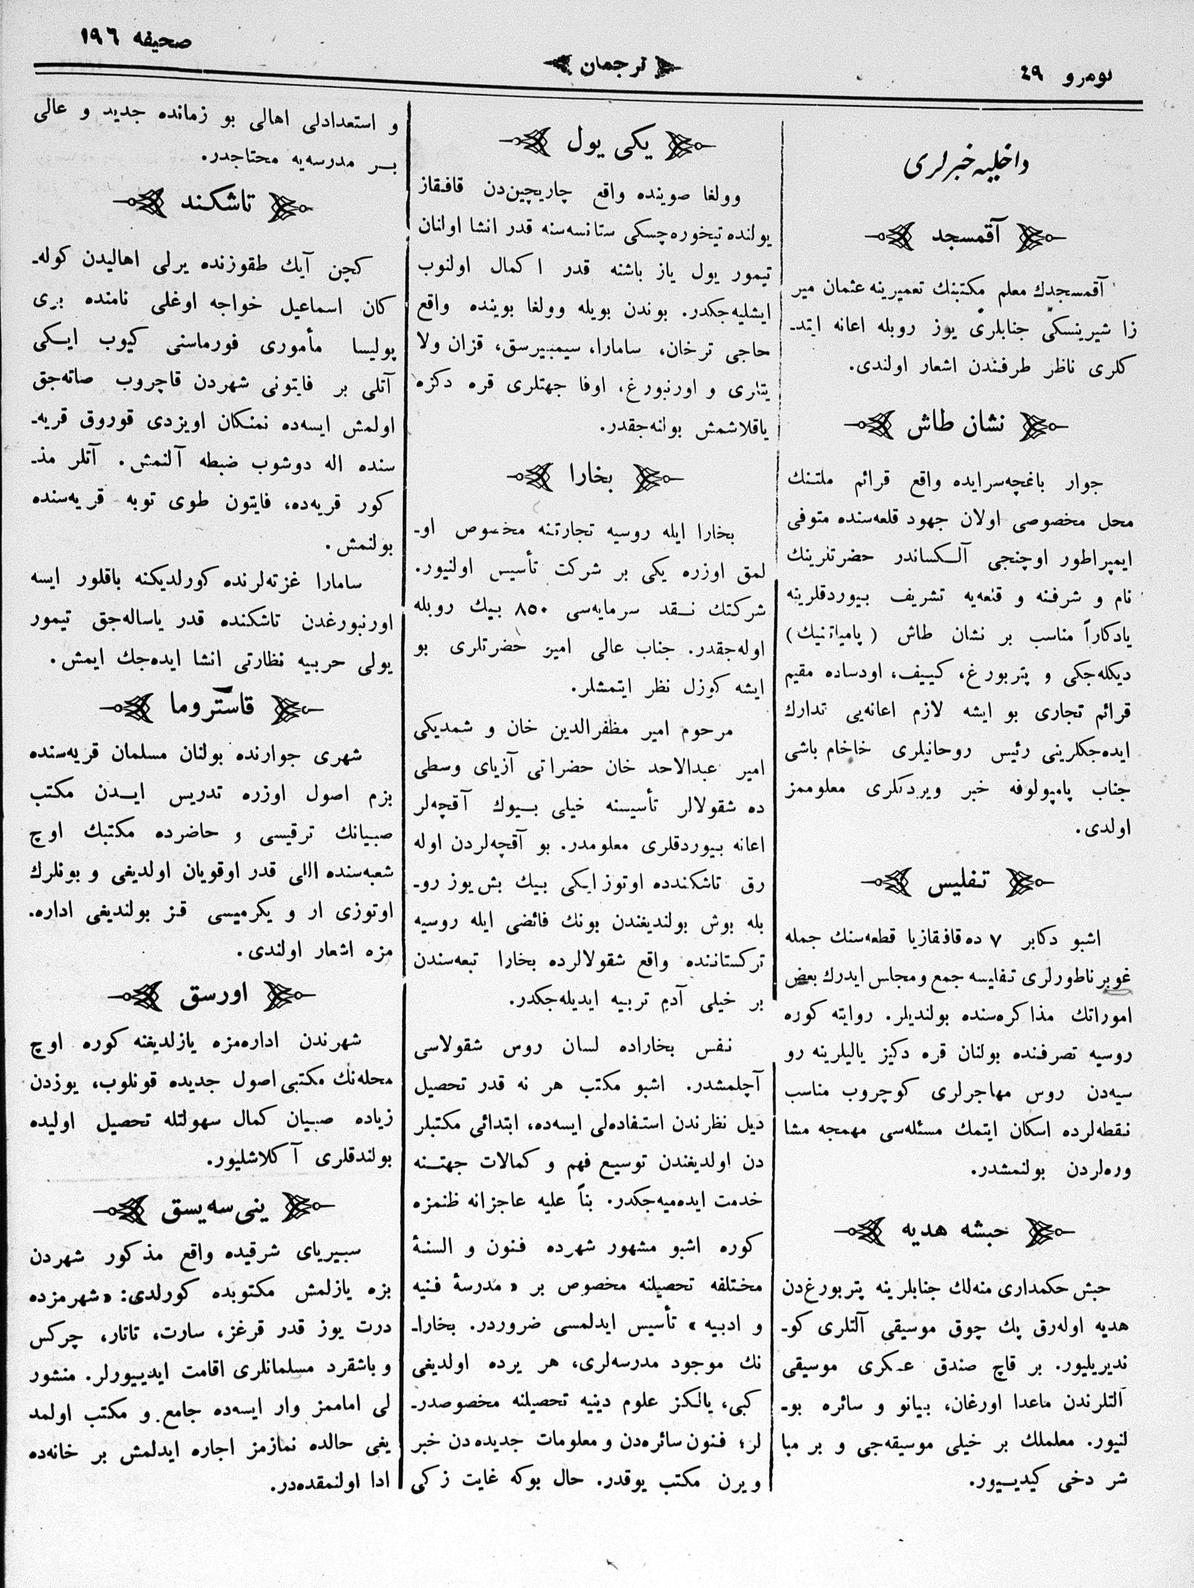 نومرو ٤٩
ترجمان
صحیفه ١٩٦
داخلیه خبرلری
آقمسجد
آقمسجدك معلم مکتبنك تعمیرینه عثمان میر
زا شیرینسکی جنابلری یوز روبله اعانه ایتد‌ـ
کلری ناظر طرفندن اشعار اولندی.
نشان طاش
جوار باغچه‌سرایده واقع قرائم ملتنك
محل مخصوصی اولان جهود قلعه‌سنده متوفی
ایمپراطور اوچنجی آلکساندر حضرتلرینك
نام و شرفنه و قلعه‌یه تشریف بیوردقلرینه
یادکاراً مناسب بر نشان طاش (پامیاتنیك)
دیکله‌جکی و پتربورغ، کییف، اودساده مقیم
قرائم تجاری بو ایشه لازم اعانه‌یی تدارك
ایده‌جکلرینی رئیس روحانیلری خاخام باشی
جناب پامپولوفه خبر ویردکلری معلوممز
اولدی.
تفلیس
اشبو دکابر ٧ ده قافقازیا قطعه‌سنك جمله
غوبرناطورلری تفلیسه جمع ومجلس ایدرك بعض
اموراتك مذاکره‌سنده بولندیلر. روایته کوره
روسیه تصرفنده بولنان قره دکیز یالیلرینه رو
سیه‌دن روس مهاجرلری کوچروب مناسب
نقطه‌لرده اسکان ایتمك مسئله‌سی مهمجه مشا
وره‌لردن بولنمشدر.
حبشه هدیه
حبش حکمداری منه‌لك جنابلرینه پتربورغ‌دن
هدیه اوله‌رق پك چوق موسیقی آلتلری کو‌ـ
ندیریلیور. بر قاچ صندق عسکری موسیقی
آلتلرندن ماعدا اورغان، بیانو و سائره بو‌ـ
لنیور. معلملك بر خیلی موسیقه‌جی و بر مبا
شر دخی کیدییور.
یکی یول
وولغا صوینده واقع چاریچین‌دن قافقاز
یولنده تیخوره‌چسکی ستانسه‌سنه قدر انشا اولنان
تیمور یول یاز باشنه قدر اکمال اولنوب
ایشلیه‌جکدر. بوندن بویله وولغا بوینده واقع
حاجی ترخان، سامارا، سیمبیرسق، قزان ولا
یتلری و اورنبورغ، اوفا جهتلری قره دکزه
یاقلاشمش بولنه‌جقدر.
بخارا
بخارا ایله روسیه تجارتنه مخصوص او‌ـ
لمق اوزره یکی بر شرکت تأسیس اولنیور.
شرکتك نقد سرمایه‌سی ٨٥٠ بیك روبله
اوله‌جقدر. جناب عالی امیر حضرتلری بو
ایشه کوزل نظر ایتمشلر.
مرحوم امیر مظفرالدین خان و شمدیکی
امیر عبدالاحد خان حضراتی آزیای وسطی
ده شقولالر تأسیسنه خیلی بیوك آقچه‌لر
اعانه بیوردقلری معلومدر. بو آقچه‌لردن اوله
رق تاشکندده اوتوز ایکی بیك بش یوز رو‌ـ
بله بوش بولندیغندن بونك فائضی ایله روسیه
ترکستاننده واقع شقولالرده بخارا تبعه‌سندن
بر خیلی آدم تربیه ایدیله‌جکدر.
نفس بخاراده لسان روس شقولاسی
آچلمشدر. اشبو مکتب هر نه قدر تحصیل
دیل نظرندن استفاده‌لی ایسه‌ده، ابتدائی مکتبلر
دن اولدیغندن توسیع فهم و کمالات جهتنه
خدمت ایده‌میه‌جکدر. بناً علیه عاجزانه ظنمزه
کوره اشبو مشهور شهرده فنون و السنۀ
مختلفه تحصیلنه مخصوص بر «مدرسۀ فنیه
و ادبیه» تأسیس ایدلمسی ضروردر. بخارا‌ـ
نك موجود مدرسه‌لری، هر یرده اولدیغی
کبی، یالکز علوم دینیه تحصیلنه مخصوصدر‌ـ
لر؛ فنون سائره‌دن و معلومات جدیده‌دن خبر
ویرن مکتب یوقدر. حال بوکه غایت زکی
و استعدادلی اهالی بو زمانده جدید و عالی
بر مدرسه‌یه محتاجدر.
تاشکند
کچن آیك طقوزنده یرلی اهالیدن کوله‌ـ
کان اسماعیل خواجه اوغلی نامنده بری
پولیسا مأموری فورماسنی کیوب ایکی
آتلی بر فایتونی شهردن قاچروب صاته‌جق
اولمش ایسه‌ده نمنکان اویزدی قوروق قریه‌ـ
سنده اله دوشوب ضبطه آلنمش. آتلر مذ‌ـ
کور قریه‌ده، فایتون طوی توبه قریه‌سنده
بولنمش.
سامارا غزته‌لرنده کورلدیکنه باقلور ایسه
اورنبورغدن تاشکنده قدر یاساله‌جق تیمور
یولی حربیه نظارتی انشا ایده‌جك ایمش.
قاستروما
شهری جوارنده بولنان مسلمان قریه‌سنده
بزم اصول اوزره تدریس ایدن مکتب
صبیانك ترقیسی و حاضرده مکتبك اوچ
شعبه‌سنده اللی قدر اوقویان اولدیغی و بونلرك
اوتوزی ار و یکرمیسی قز بولندیغی اداره‌.
مزه اشعار اولندی.
اورسق
شهرندن اداره‌مزه یازلدیغنه کوره اوچ
محله‌نك مکتبی اصول جدیده قونلوب، یوزدن
زیاده صبیان کمال سهولتله تحصیل اولیده
بولندقلری آکلاشلیور.
ینی‌سه‌یسق
سیبریای شرقیده واقع مذکور شهردن
بزه یازلمش مکتوبده کورلدی: «شهرمزده
درت یوز قدر قرغز، سارت، تاتار، چرکس
و باشقرد مسلمانلری اقامت ایدییورلر. منشور
لی اماممز وار ایسه‌ده جامع و مکتب اولمد
یغی حالده نمازمز اجاره ایدلمش بر خانه‌ده
ادا اولنمقده‌در.